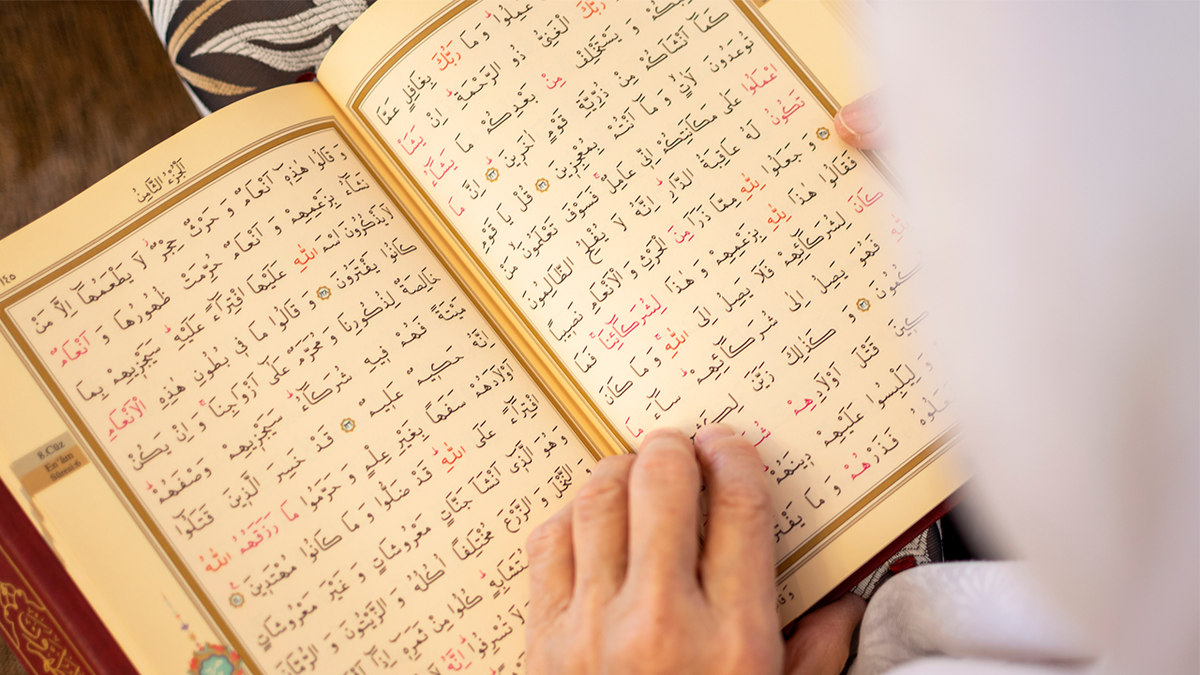 عَمِلُوا وَمَا رَبُّكَ بِغَافِلٍ عَمَّا
الْغَنِيُّ ذُو الرَّحْمَةِ اِنْ يَشَأْ
وَيَسْتَخْلِفْ مِنْ بَعْدِكُمْ مَا يَشَٓاءُ
كَمَٓا اَنْشَاَكُمْ مِنْ ذُرِّيَّةِ قَوْمٍ اٰخَرِينَ اِنَّ مَا
تُوعَدُونَ لَاٰتٍ وَمَٓا اَنْتُمْ بِمُعْجِزِينَ قُلْ يَا قَوْمِ
اعْمَلُوا عَلٰى مَكَانَتِكُمْ اِنِّي عَامِلٌ فَسَوْفَ تَعْلَمُونَ مَنْ
تَكُونُ لَهُ عَاقِبَةُ الدَّارِ اِنَّهُ لَا يُفْلِحُ الظَّالِمُونَ
وَجَعَلُوا لِلّٰهِ مِمَّا ذَرَاَ مِنَ الْحَرْثِ وَالْاَنْعَامِ نَصِيبًا
فَقَالُوا هٰذَا لِلّٰهِ بِزَعْمِهِمْ وَهٰذَا لِشُرَكَٓائِنَا فَمَا
كَانَ لِشُرَكَٓائِهِمْ فَلَا يَصِلُ اِلَى اللّٰهِ وَمَا كَانَ
فَهُوَ يَصِلُ اِلٰى شُرَكَٓائِهِمْ سَٓاءَ مَا
وَكَذٰلِكَ زَيَّنَ
قَتْلَ اَوْلَادِهِمْ
وَلِيَلْبِسُوا عَلَيْهِمْ دِينَهُمْ
فَذَرْهُمْ وَمَا
اَلْجُزْءُ الثَّامِنُ
١٤٥
وَقَالُوا هٰذِهِٓ اَنْعَامٌ وَحَرْثٌ حِجْرٌ لَا يَطْعَمُهَٓا اِلَّا مَنْ
نَشَٓاءُ بِزَعْمِهِمْ وَاَنْعَامٌ حُرِّمَتْ ظُهُورُهَا وَاَنْعَامٌ
لَا يَذْكُرُونَ اسْمَ اللّٰهِ عَلَيْهَا افْتِرَٓاءً عَلَيْهِ سَيَجْزِيهِمْ بِمَا
كَانُوا يَفْتَرُونَ وَقَالُوا مَا فِي بُطُونِ هٰذِهِ الْاَنْعَامِ
خَالِصَةٌ لِذُكُورِنَا وَمُحَرَّمٌ عَلٰٓى اَزْوَاجِنَا وَاِنْ يَكُنْ
مَيْتَةً فَهُمْ فِيهِ شُرَكَٓاءُ سَيَجْزِيهِمْ وَصْفَهُمْ
اِنَّهُ حَكِيمٌ عَلِيمٌ قَدْ خَسِرَ الَّذِينَ قَتَلُٓوا
اَوْلَادَهُمْ سَفَهًا بِغَيْرِ عِلْمٍ وَحَرَّمُوا مَا رَزَقَهُمُ اللّٰهُ
افْتِرَٓاءً عَلَى اللّٰهِ قَدْ ضَلُّوا وَمَا كَانُوا مُهْتَدِينَ
وَهُوَ الَّذِٓي اَنْشَاَ جَنَّاتٍ مَعْرُوشَاتٍ وَغَيْرَ مَعْرُوشَاتٍ
وَالنَّخْلَ وَالزَّرْعَ مُخْتَلِفًا اُكُلُهُ وَالزَّيْتُونَ وَالرُّمَّانَ
مُتَشَابِهٍ كُلُوا مِنْ ثَمَرِهِٓ اِذَٓا
وَلَا تُسْرِفُوا اِنَّهُ
8.Cüz
En'âm
Sûresi 6